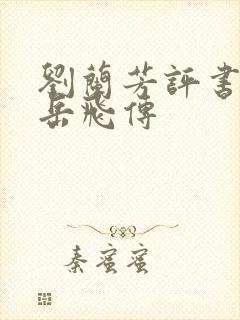 劉蘭芳評書
岳飛傳
秦蜜蜜